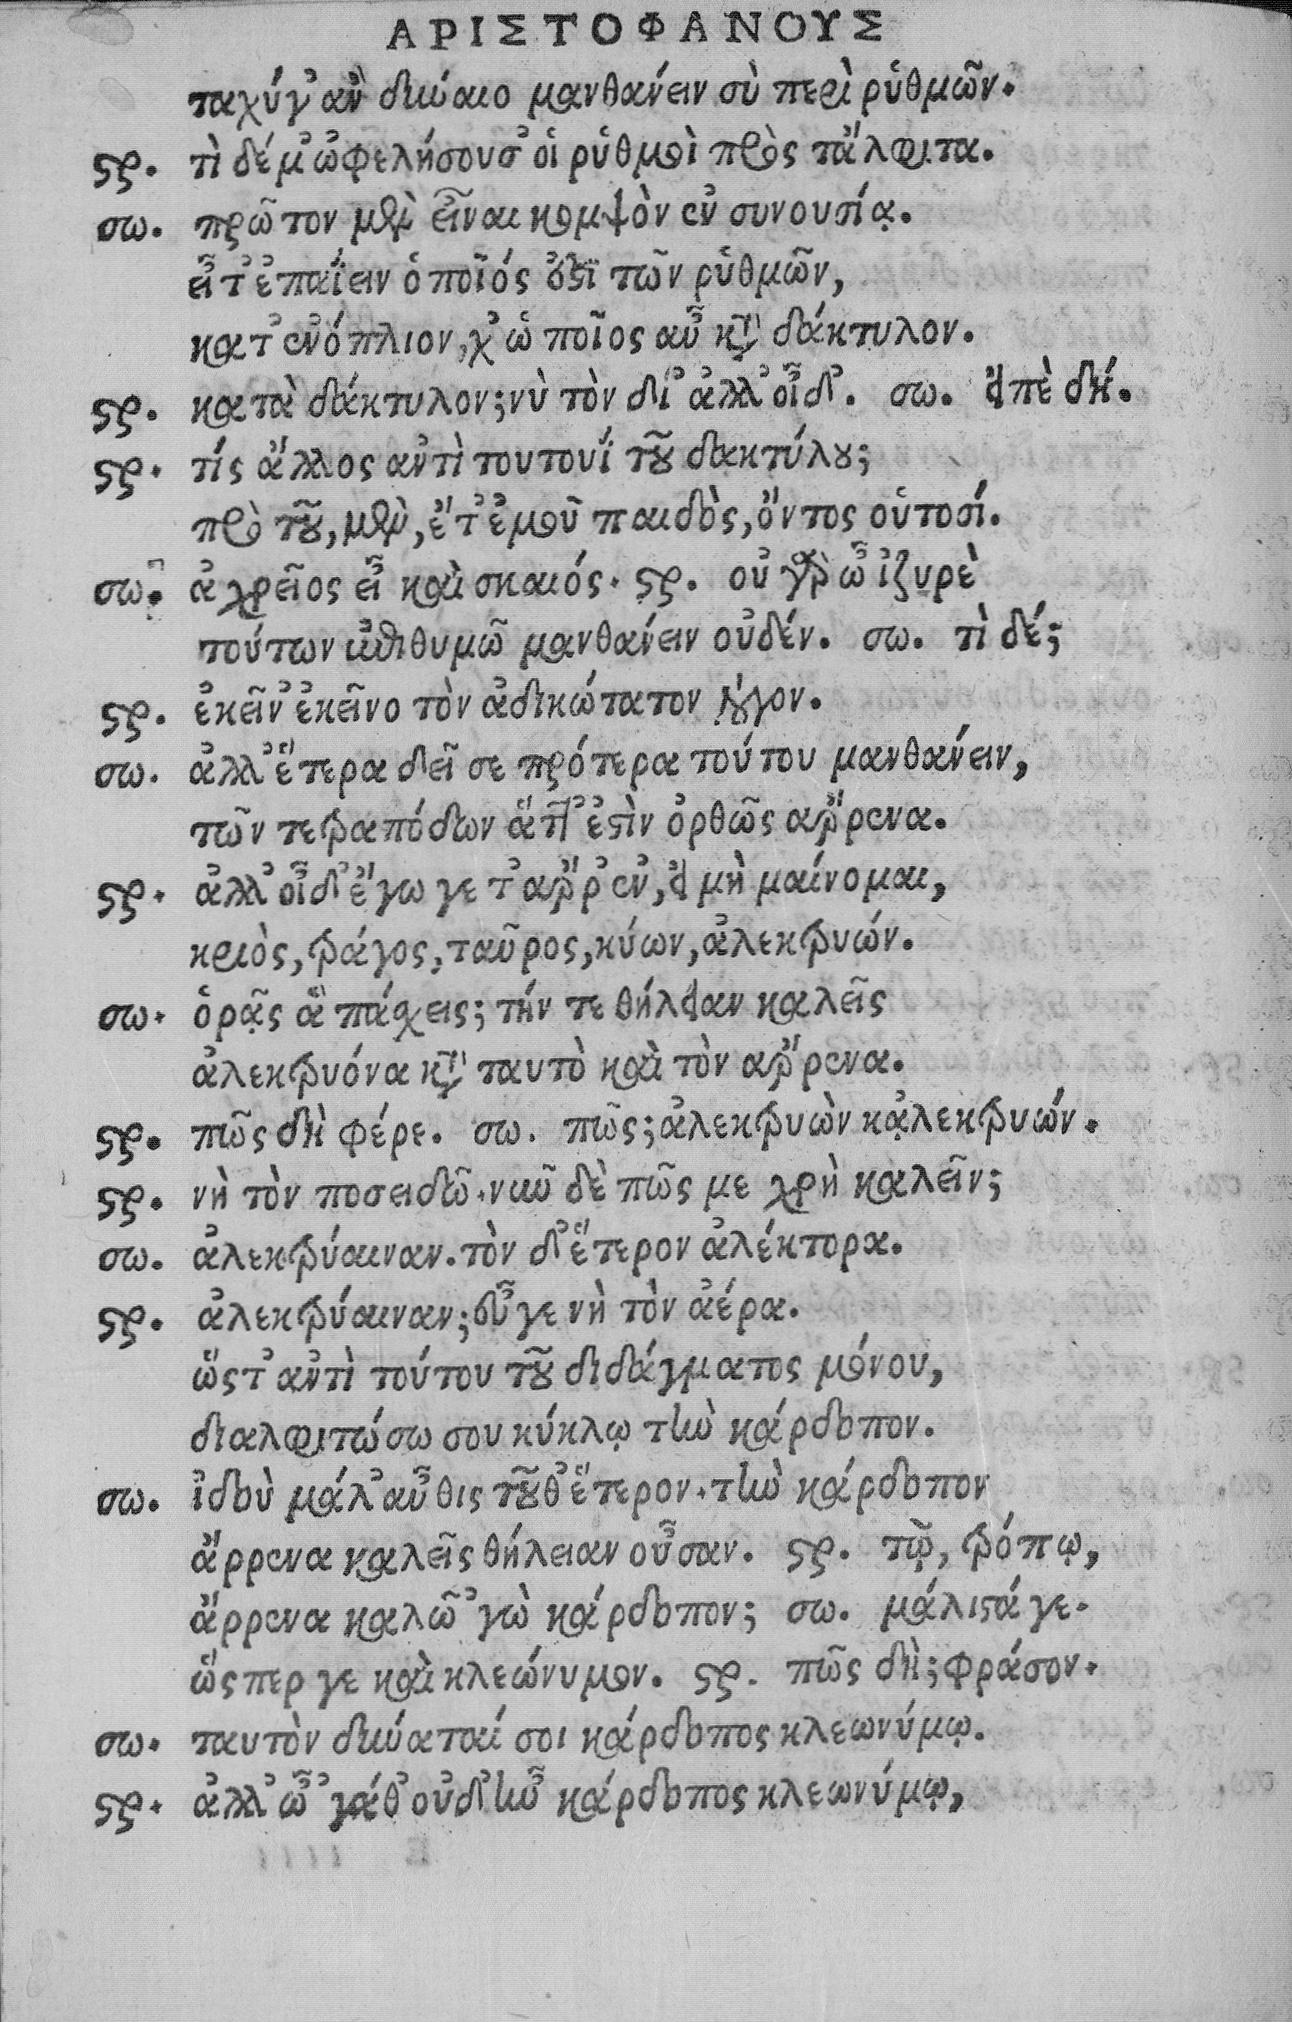 ΑΡΙΣΤΟΦΑΝΟΥΣ
ταχύγ' ἂν δυναιο μανθάνειν σὺ περὶ ῥυθμῶν.
ϛρ. τὶ δέ μ' ὠφελήσουσ' οἱ ῥυθμοὶ πρὸς τἄλφιτα.
σω. πρῶτον μὲν εἶναι κομψὸν ἐν συνουσίᾳ.
εἶτ' ἐπαΐειν ὁποῖός ἐστι τῶν ῥυθμῶν,
κατ' ἐνόπλιον, χ' ὡ ποῖος αὖ κατὰ δάκτυλον.
ϛρ. κατὰ δάκτυλον; νὺ τὸν δί' ἀλλ' οἶδ'. σω. εἰπὲ δή.
ϛρ. τίς ἄλλος ἀντὶ τουτουΐ τοῦ δακτύλου;
πρὸ τοῦ, μὲν, ἔτ' ἐμοῦ παιδὸς, ὄντος οὑτοσί.
σω. ἀχρεῖος εἶ καὶ σκαιός. ϛρ. οὐ γὰρ ὦ ἰζυρὲ
τούτων ἐπιθυμῶ μανθάνειν οὐδέν. σω. τὶ δέ;
ϛρ. ἐκεῖν' ἐκεῖνο τὸν ἀδικώτατον λόγον.
σω. ἀλλ' ἕτερα δεῖ σε πρότερα τούτου μανθάνειν,
τῶν τετραπόδων ἅττ' ἐστὶν ὀρθῶς ἄρρενα.
ϛρ. ἀλλ' οἶδ' ἔγωγε τ' ἄρρεν', εἰ μὴ μαίνομαι,
κριὸς, τράγος, ταῦρος, κύων, ἀλεκτρυών.
σω. ὁρᾷς ἃ πάσχεις; τήν τε θήλειαν καλεῖς
ἀλεκτρυόνα κατὰ ταυτὸ καὶ τὸν ἄρρενα.
ϛρ. πῶς δὴ φέρε. σω. πῶς; ἀλεκτρυὼν κᾀλεκτρυών.
ϛρ. νὴ τὸν ποσειδῶ. νῦν δὲ πῶς με χρὴ καλεῖν;
σω. ἀλεκτρύαιναν. τὸν δ' ἕτερον ἀλέκτορα.
ϛρ. ἀλεκτρύαιναν; εὖγε νὴ τὸν ἀέρα.
ὥςτ' ἀντὶ τούτου τοῦ διδάγματος μόνου,
διαλφιτώσω σου κύκλῳ τὴν κάρδοπον.
σω. ἰδοὺ μάλ' αὖθις τοῦθ' ἕτερον. τὴν κάρδοπον
ἄρρενα καλεῖς θήλειαν οὖσαν. ϛρ. τῷ, τρόπῳ,
ἄρρενα καλῶ 'γὼ κάρδοπον; σω. μάλιϛά γε.
ὥςπερ γε καὶ κλεώνυμον. ϛρ. πῶς δὴ; φράσον.
σω. ταυτὸν δύναταί σοι κάρδοπος κλεωνύμῳ.
ϛρ. ἀλλ' ὦ 'γάθ' οὐδ' ἦν κάρδοπος κλεωνύμῳ,